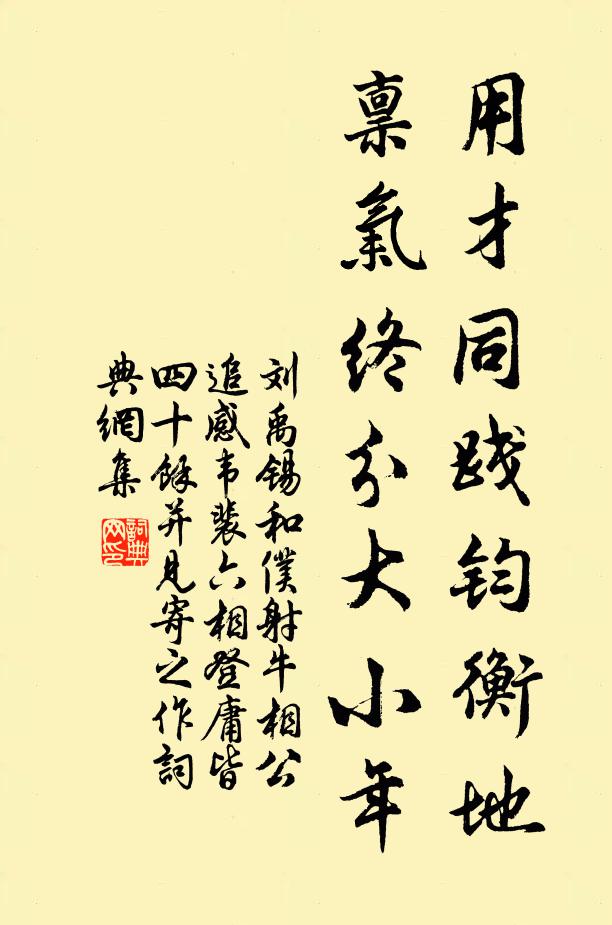 用才同践钧衡地
禀氣终分大小年
刘禹锡和僕射牛相公
追感韦裴六相登庸皆
四十餘并見寄之作詞
典網集
詞典网印